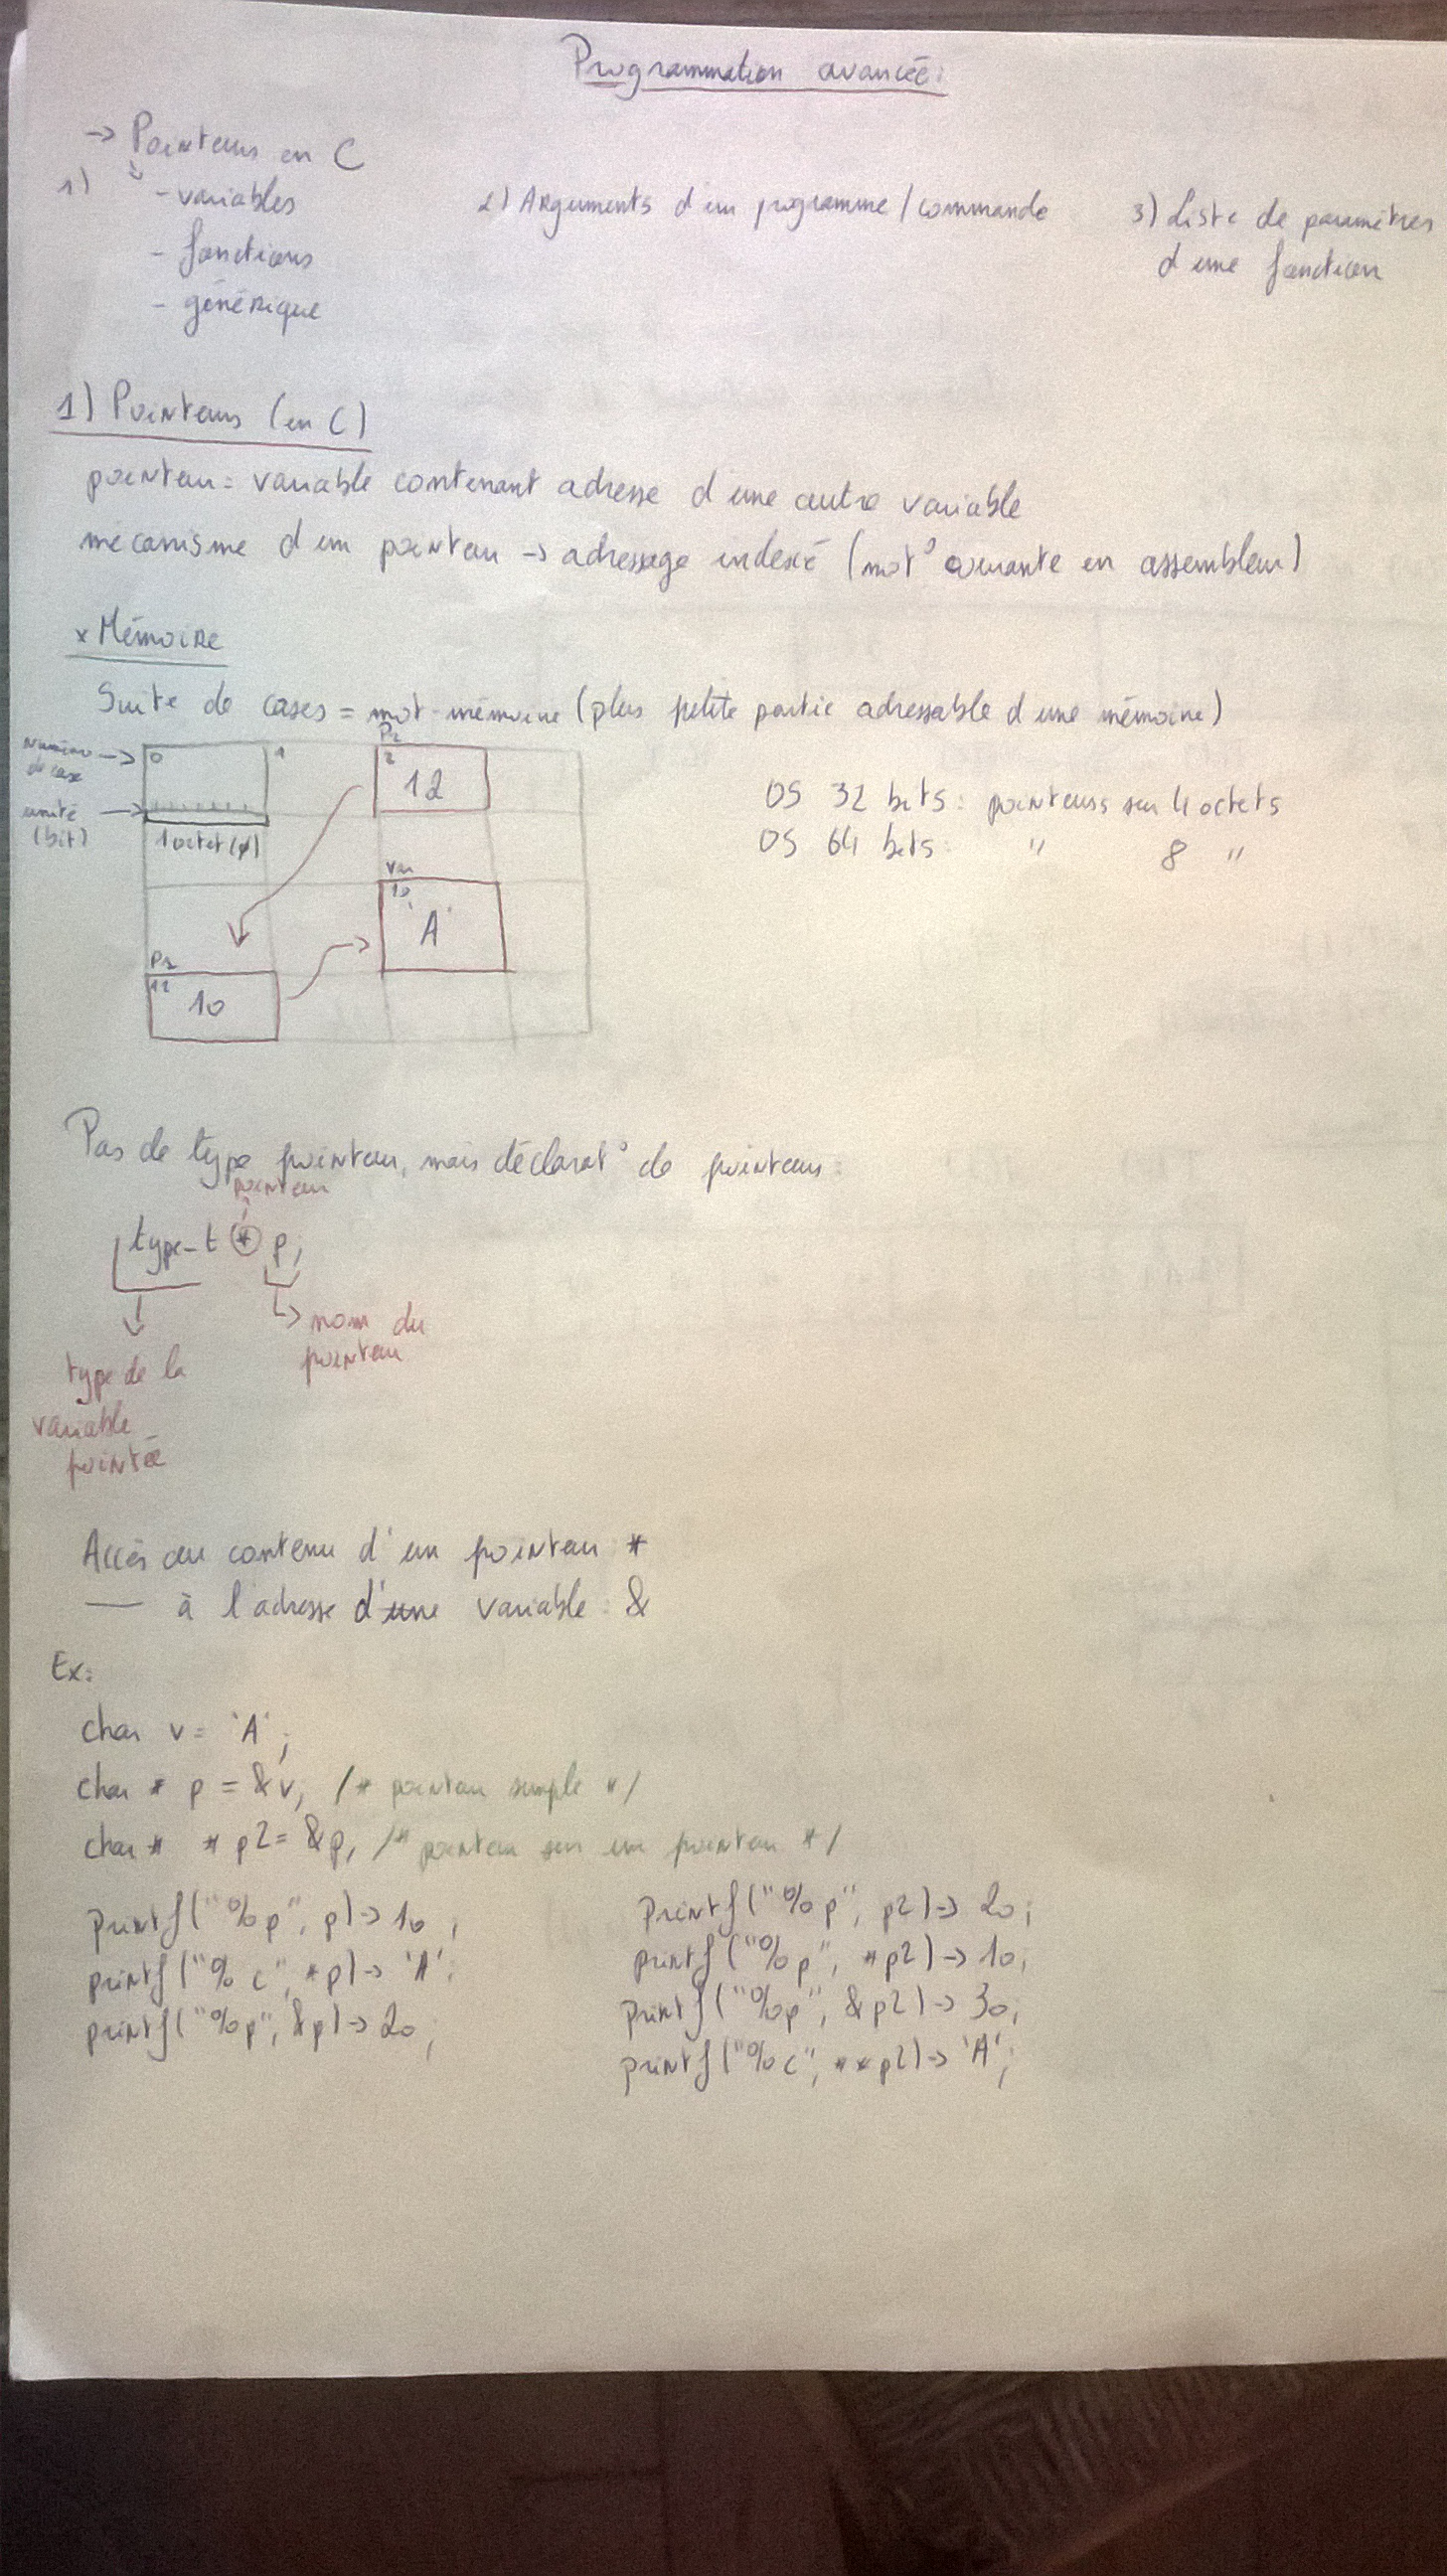 Programmation avancée:
→ Pointeurs en C
1) - variables
- fonctions
- générique
2) Arguments d'un programme / commande
3) Liste de paramètres
d'une fonction
1) Pointeurs (en C)
pointeur = variable contenant adresse d'une autre variable
mécanisme d'un pointeur → adressage indexé (not° courante en assembleur)
x Mémoire
Suite de cases = mot-mémoire (plus petite partie adressable d'une mémoire)
Numéro → 0 1
de case
unité →
(bit)
1 octet
P2
2
12
Var
10
'A'
P1
12
10
OS 32 bits : pointeurs sur 4 octets
OS 64 bits : " 8 "
Pas de type pointeur, mais déclarat° de pointeurs :
pointeur
type_t * p;
nom du
pointeur
type de la
variable
pointée
Accès au contenu d'un pointeur *
— à l'adresse d'une variable : &
Ex:
char v = 'A';
char * p = &v; /* pointeur simple */
char * * p2 = &p; /* pointeur sur un pointeur */
printf("%p", p) → 10;
printf("%c", *p) → 'A';
printf("%p", &p) → 20;
printf("%p", p2) → 20;
printf("%p", *p2) → 10;
printf("%p", &p2) → 30;
printf("%c", **p2) → 'A';